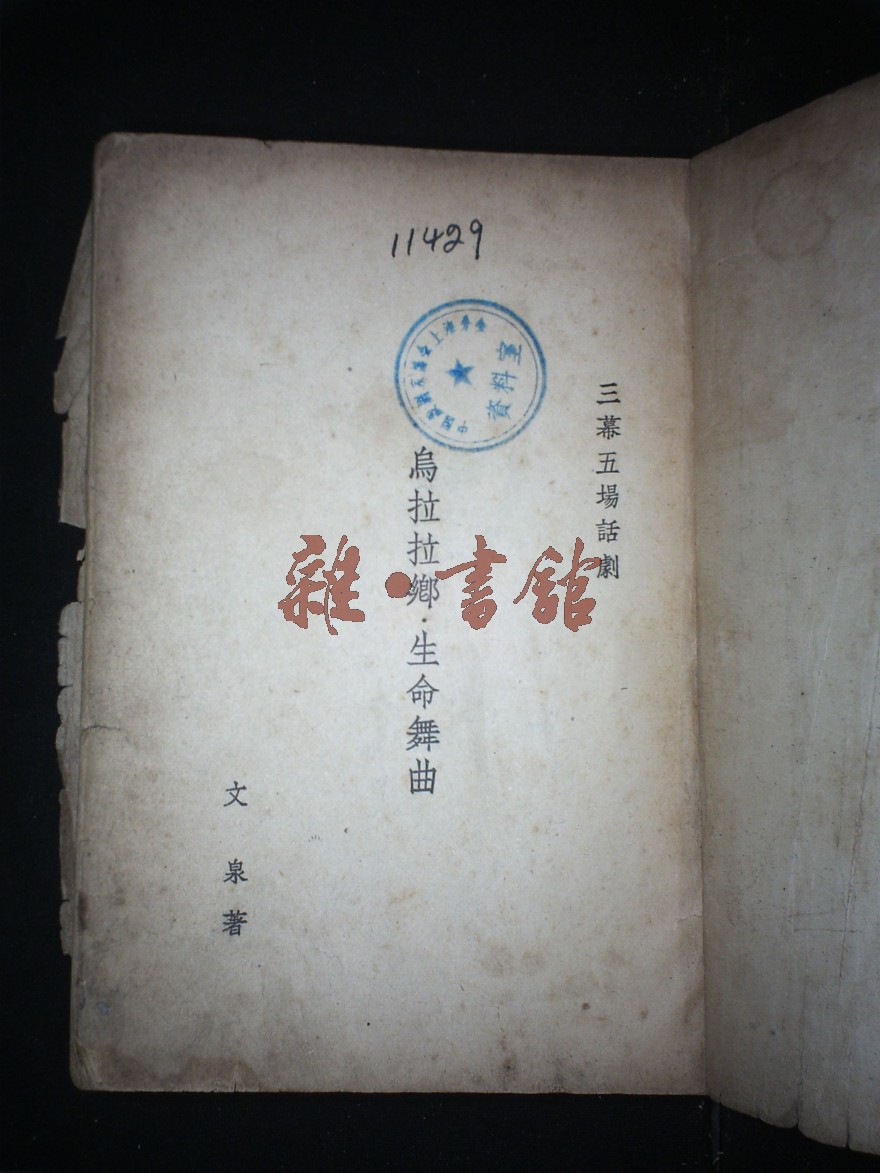 11429
資料室
三幕五場話劇
烏拉拉鄉·生命舞曲
文泉著
雜·書館